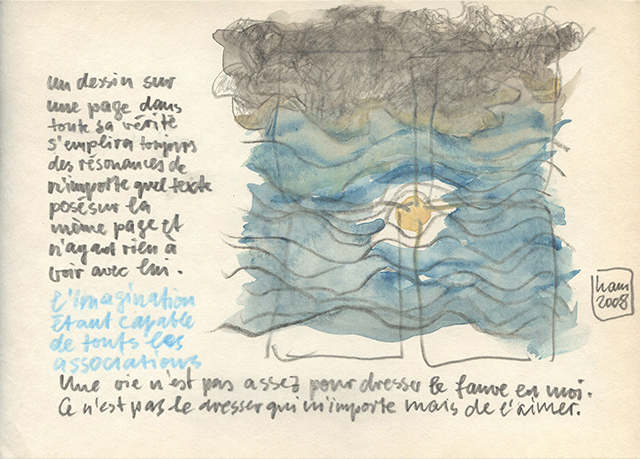 un dessin sur
une page dans
toute sa vérité
s'emplira toujours
des résonances de
n'importe quel texte
posé sur la
même page et
n'ayant rien à
voir avec lui.
l'imagination
étant capable
de toutes les
associations
Une vie n'est pas assez pour dresser le fauve en moi.
Ce n'est pas le dresser qui m'importe mais de l'aimer.
ham
2008